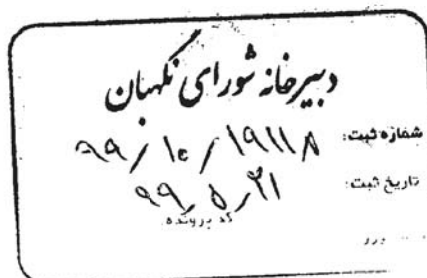 دبیرخانه شورای نگهبان
شماره ثبت: ۹۹/۱۰/۱۹۱۱۸
تاریخ ثبت: ۹۹٫۵٫۲۱
کد پرونده: